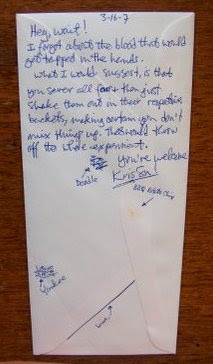 3-16-7
Hey, wait!
I forgot about the blood that would
get trapped in the hands.
What I would suggest, is that
you sever all four then just
shake them out in their respective
buckets, making certain you don't
mix things up. That would throw
off the whole experiment.
You're welcome
Kristen!
Doodle
BBQ